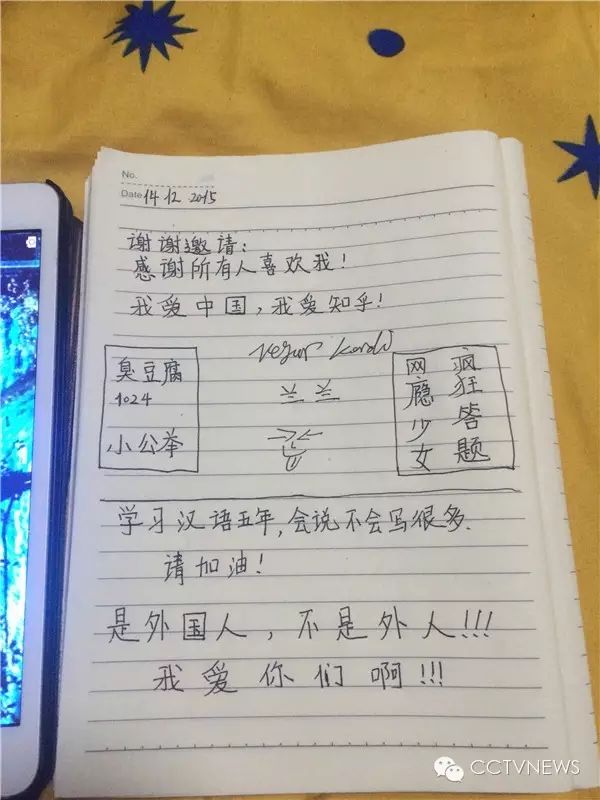 No.
Date 14 12 2015
谢谢邀请:
感谢所有人喜欢我!
我爱中国,我爱知乎!
臭豆腐
1024
小公举
网瘾少女
疯狂答题
学习汉语五年,会说不会写很多.
请加油!
是外国人,不是外人!!!
我爱你们啊!!!
CCTVNEWS